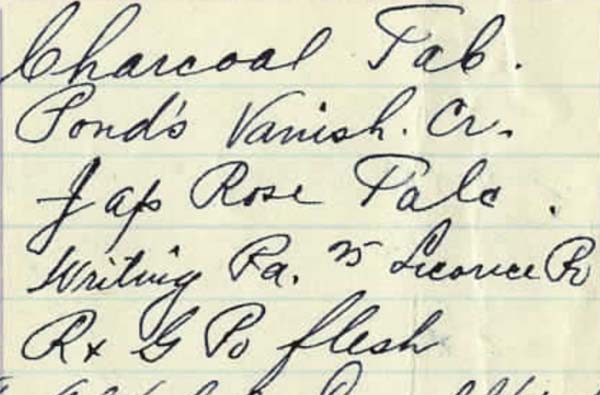 Charcoal Tab.
Pond's Vanish. Cr.
Jap Rose Talc.
Writing Pa. 25 Licorice Po
Rx G Po flesh